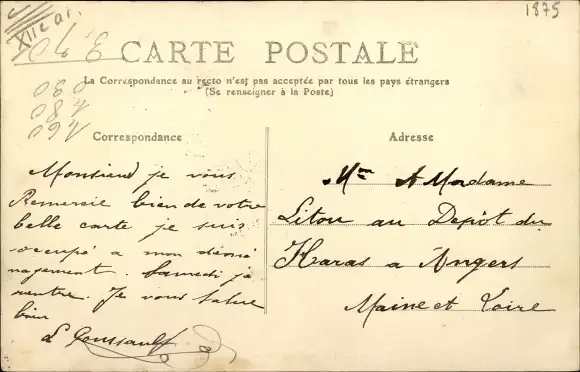 XIIe ar.
1875
CARTE POSTALE
La Correspondance au recto n'est pas acceptée par tous les pays étrangers
(Se renseigner à la Poste)
Correspondance
Monsieur je vous
Remercie bien de votre
belle carte je suis
occupé a mon démé
nagement. Samedi je
rentre. Je vous salue
bien
L Goussault
Adresse
Mm A Madame
Litou au Depôt du
Haras a Angers
Maine et Loire